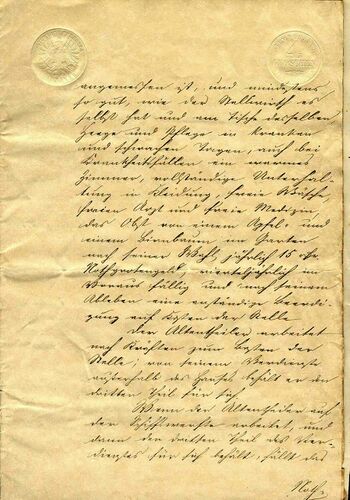 angemessen ist, und mindestens
so gut, wie der Stellwirth es
selbst hat und am Tische desselben
Hege und Pflege in kranken
und schwachen Tagen, auch bei
Krankheitsfällen ein warmes
Zimmer, vollständige Unterhal-
tung in Kleidung, freie Wäsche
freien Arzt und freie Medizin,
das Obst von einem Apfel- und
einem Birnbaum im Garten
nach seiner Wahl, jährlich 15
Nothgroschengeld, vierteljährlich im
Voraus fällig und nach seinem
Ableben eine anständige Beerdi-
gung auf Kosten der Stelle
Der Altentheiler arbeitet
nach Kräften zum Besten der
Stelle; von seinem Verdienste
außerhalb des Hauses behält er den
dritten Theil für sich
Wenn der Altentheiler auf
der Schiffswerfte arbeitet, und
dann den dritten Theil des Ver-
dienstes für sich behält, fällt das
Noth-